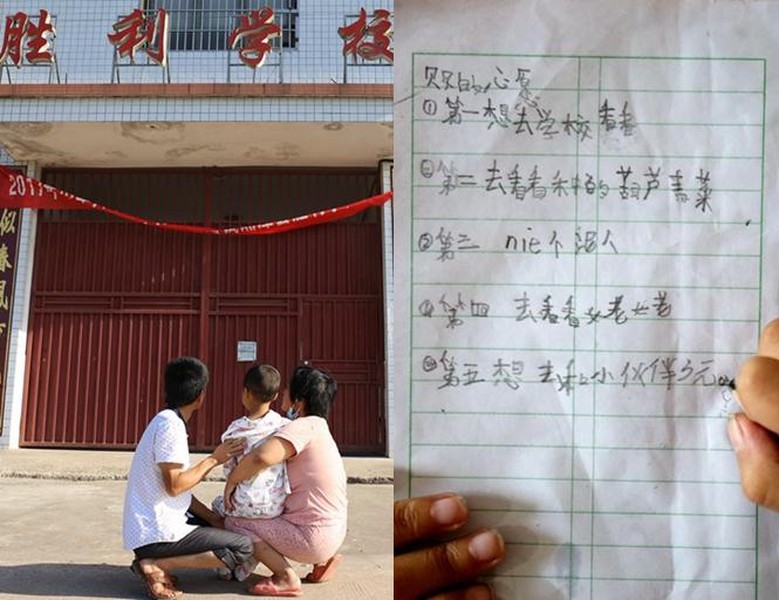 胜利学校
2017年
似春风
贝贝的心愿
①第一想去学校看看
②第二去看看种的葫芦青菜
③第三 nie个泥人
④第四 去看看姥姥
⑤第五想去和小伙伴玩